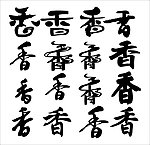 香 香 香 香
香 香 香 香
香 香 香 香
香 香 香 香